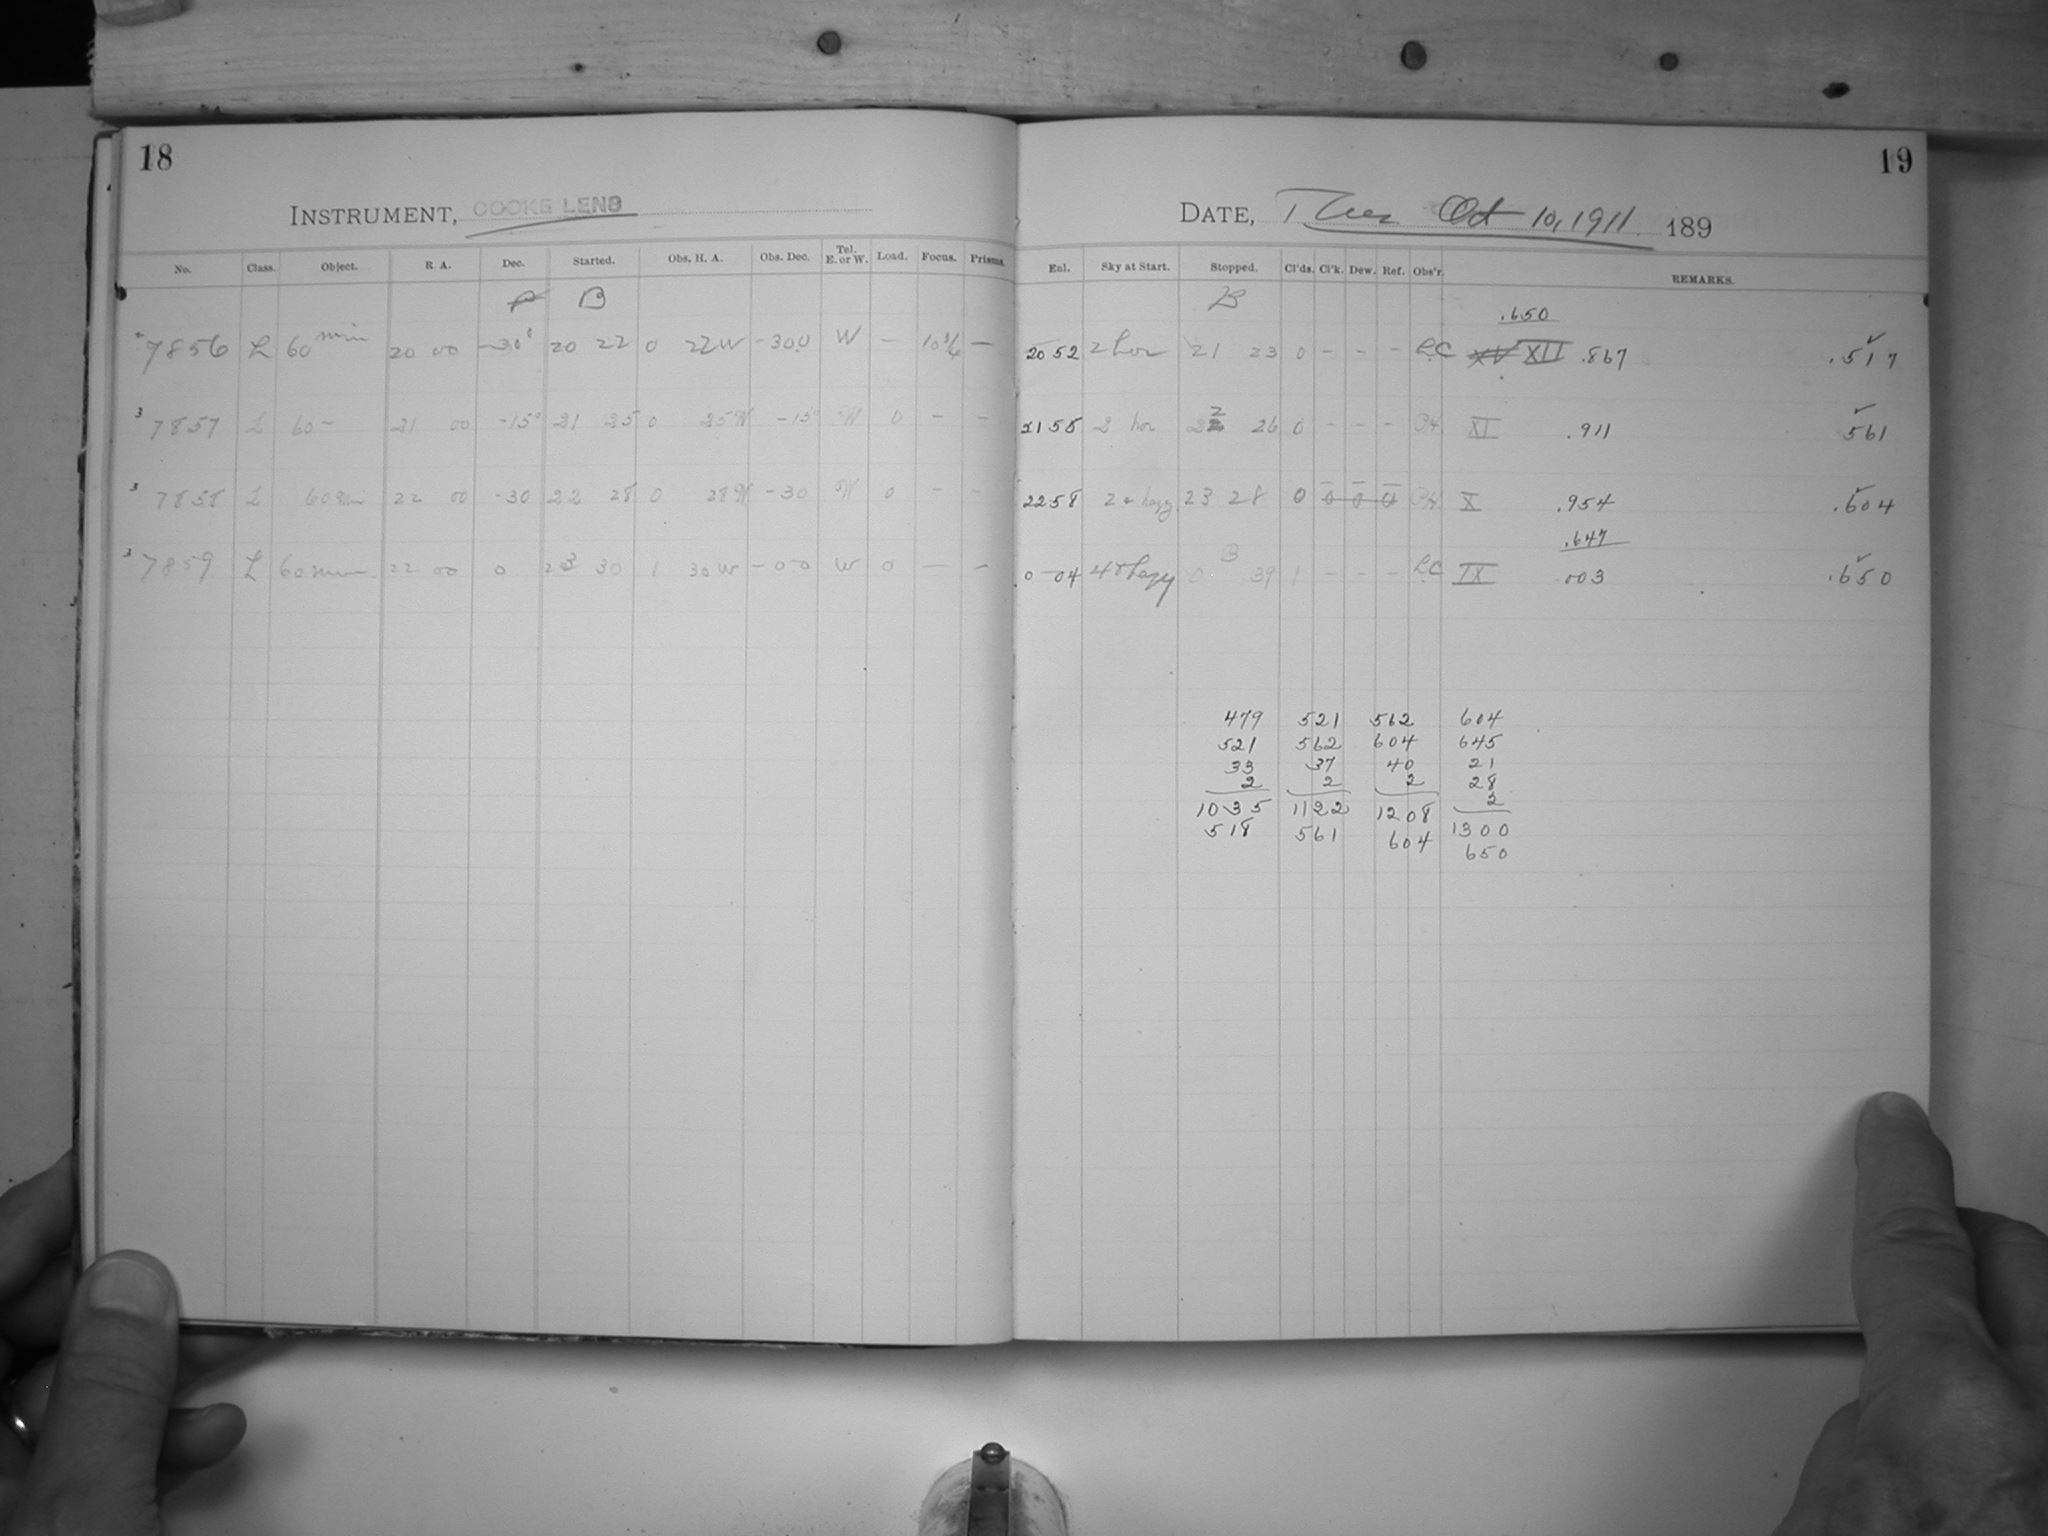 18
INSTRUMENT, COOKE LENS
No. Class. Object. R. A. Dec. Started. Obs. H. A. Obs. Dec. Tel. E. or W. Load. Focus. Prisms.
B
7856 L 60 min 20 00 -30° 20 22 0 22 W -30.0 W - 10 3/4 -
3 7857 L 60 - 21 00 -15° 21 25 0 25 W -15° W 0 - -
3 7858 L 60 min 22 00 -30 22 28 0 28 W -30 W 0 - -
3 7859 L 60 min. 22 00 0 23 30 1 30 W -0.0 W 0 - -
19
DATE, Tues Oct 10, 1911. 189
Enl. Sky at Start. Stopped. Cl'ds. Cl'k. Dew. Ref. Obs'r. REMARKS.
B
.650
2052 2 hor 21 23 0 - - - LC XV XII .867 .517
2155 2 hor 22 26 0 - - - XI .911 561
2258 2 + hazy 23 28 0 0 0 0 X .954 .604
.647
B
0 04 4 + hazy 0 39 1 - - - LC IX .003 .650
479 521 562 604
521 562 604 645
33 37 40 21
2 2 2 28
2
1035 1122 1208 1300
518 561 604 650